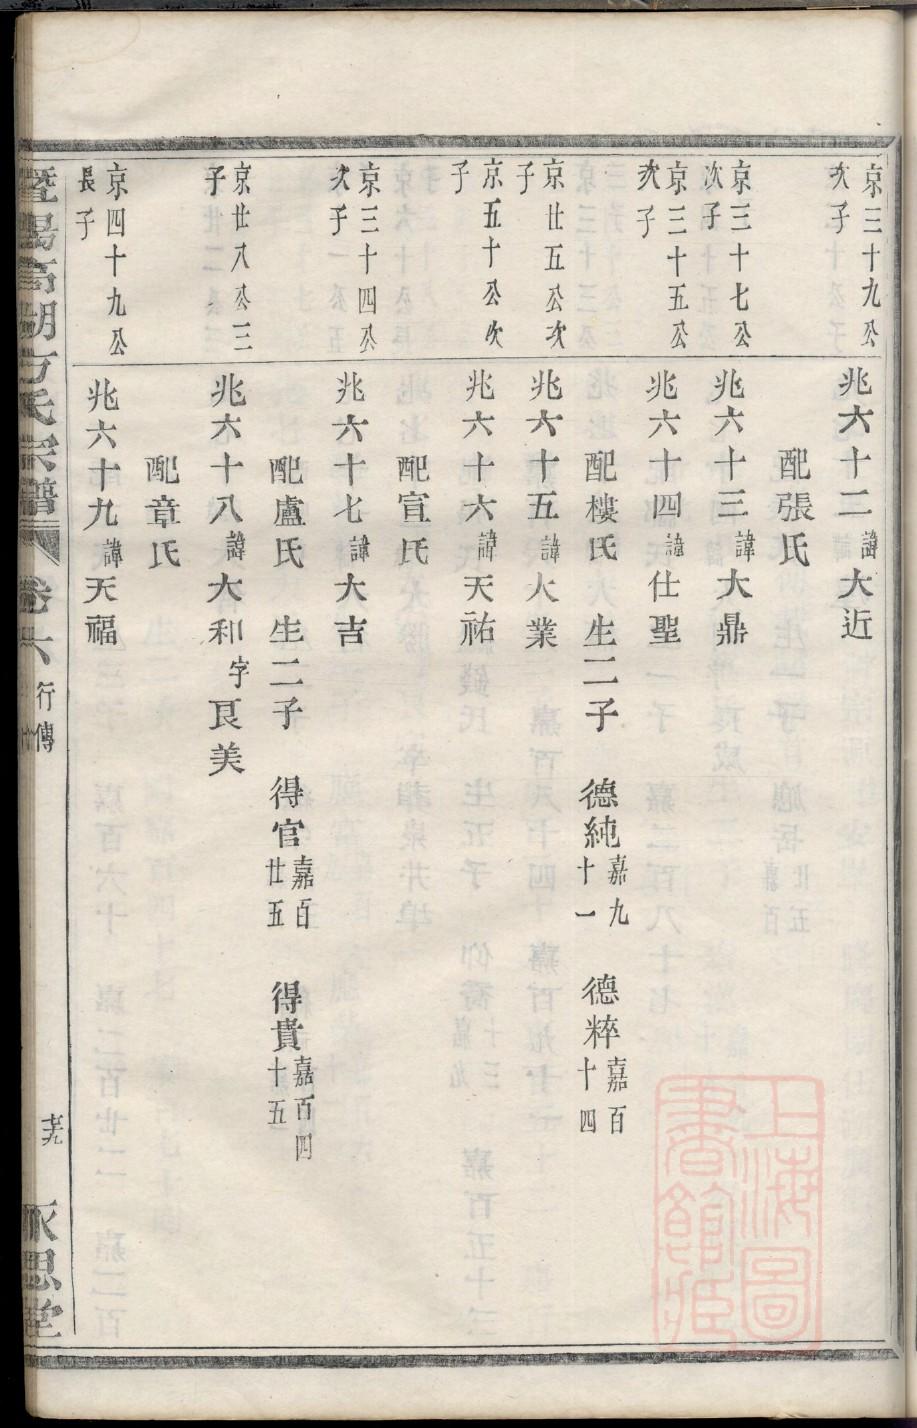 京三十九公
次子
兆六十二諱大近
配張氏
京三十七公
次子
兆六十三諱大鼎
京三十五公
次子
兆六十四諱仕聖
配樓氏　生二子　德純嘉九十一　德粹嘉百十四
京廿五公次
子
兆六十五諱大業
京五十公次
子
兆六十六諱天祐
配宣氏
京三十四公
次子
兆六十七諱大吉
配盧氏　生二子　得官嘉百廿五　得貴嘉百四十五
京廿八公三
子
兆六十八諱大和字良美
配章氏
京四十九公
長子
兆六十九諱天福
暨陽高湖方氏宗譜　卷六　行傳
永思堂
上海圖
書館藏